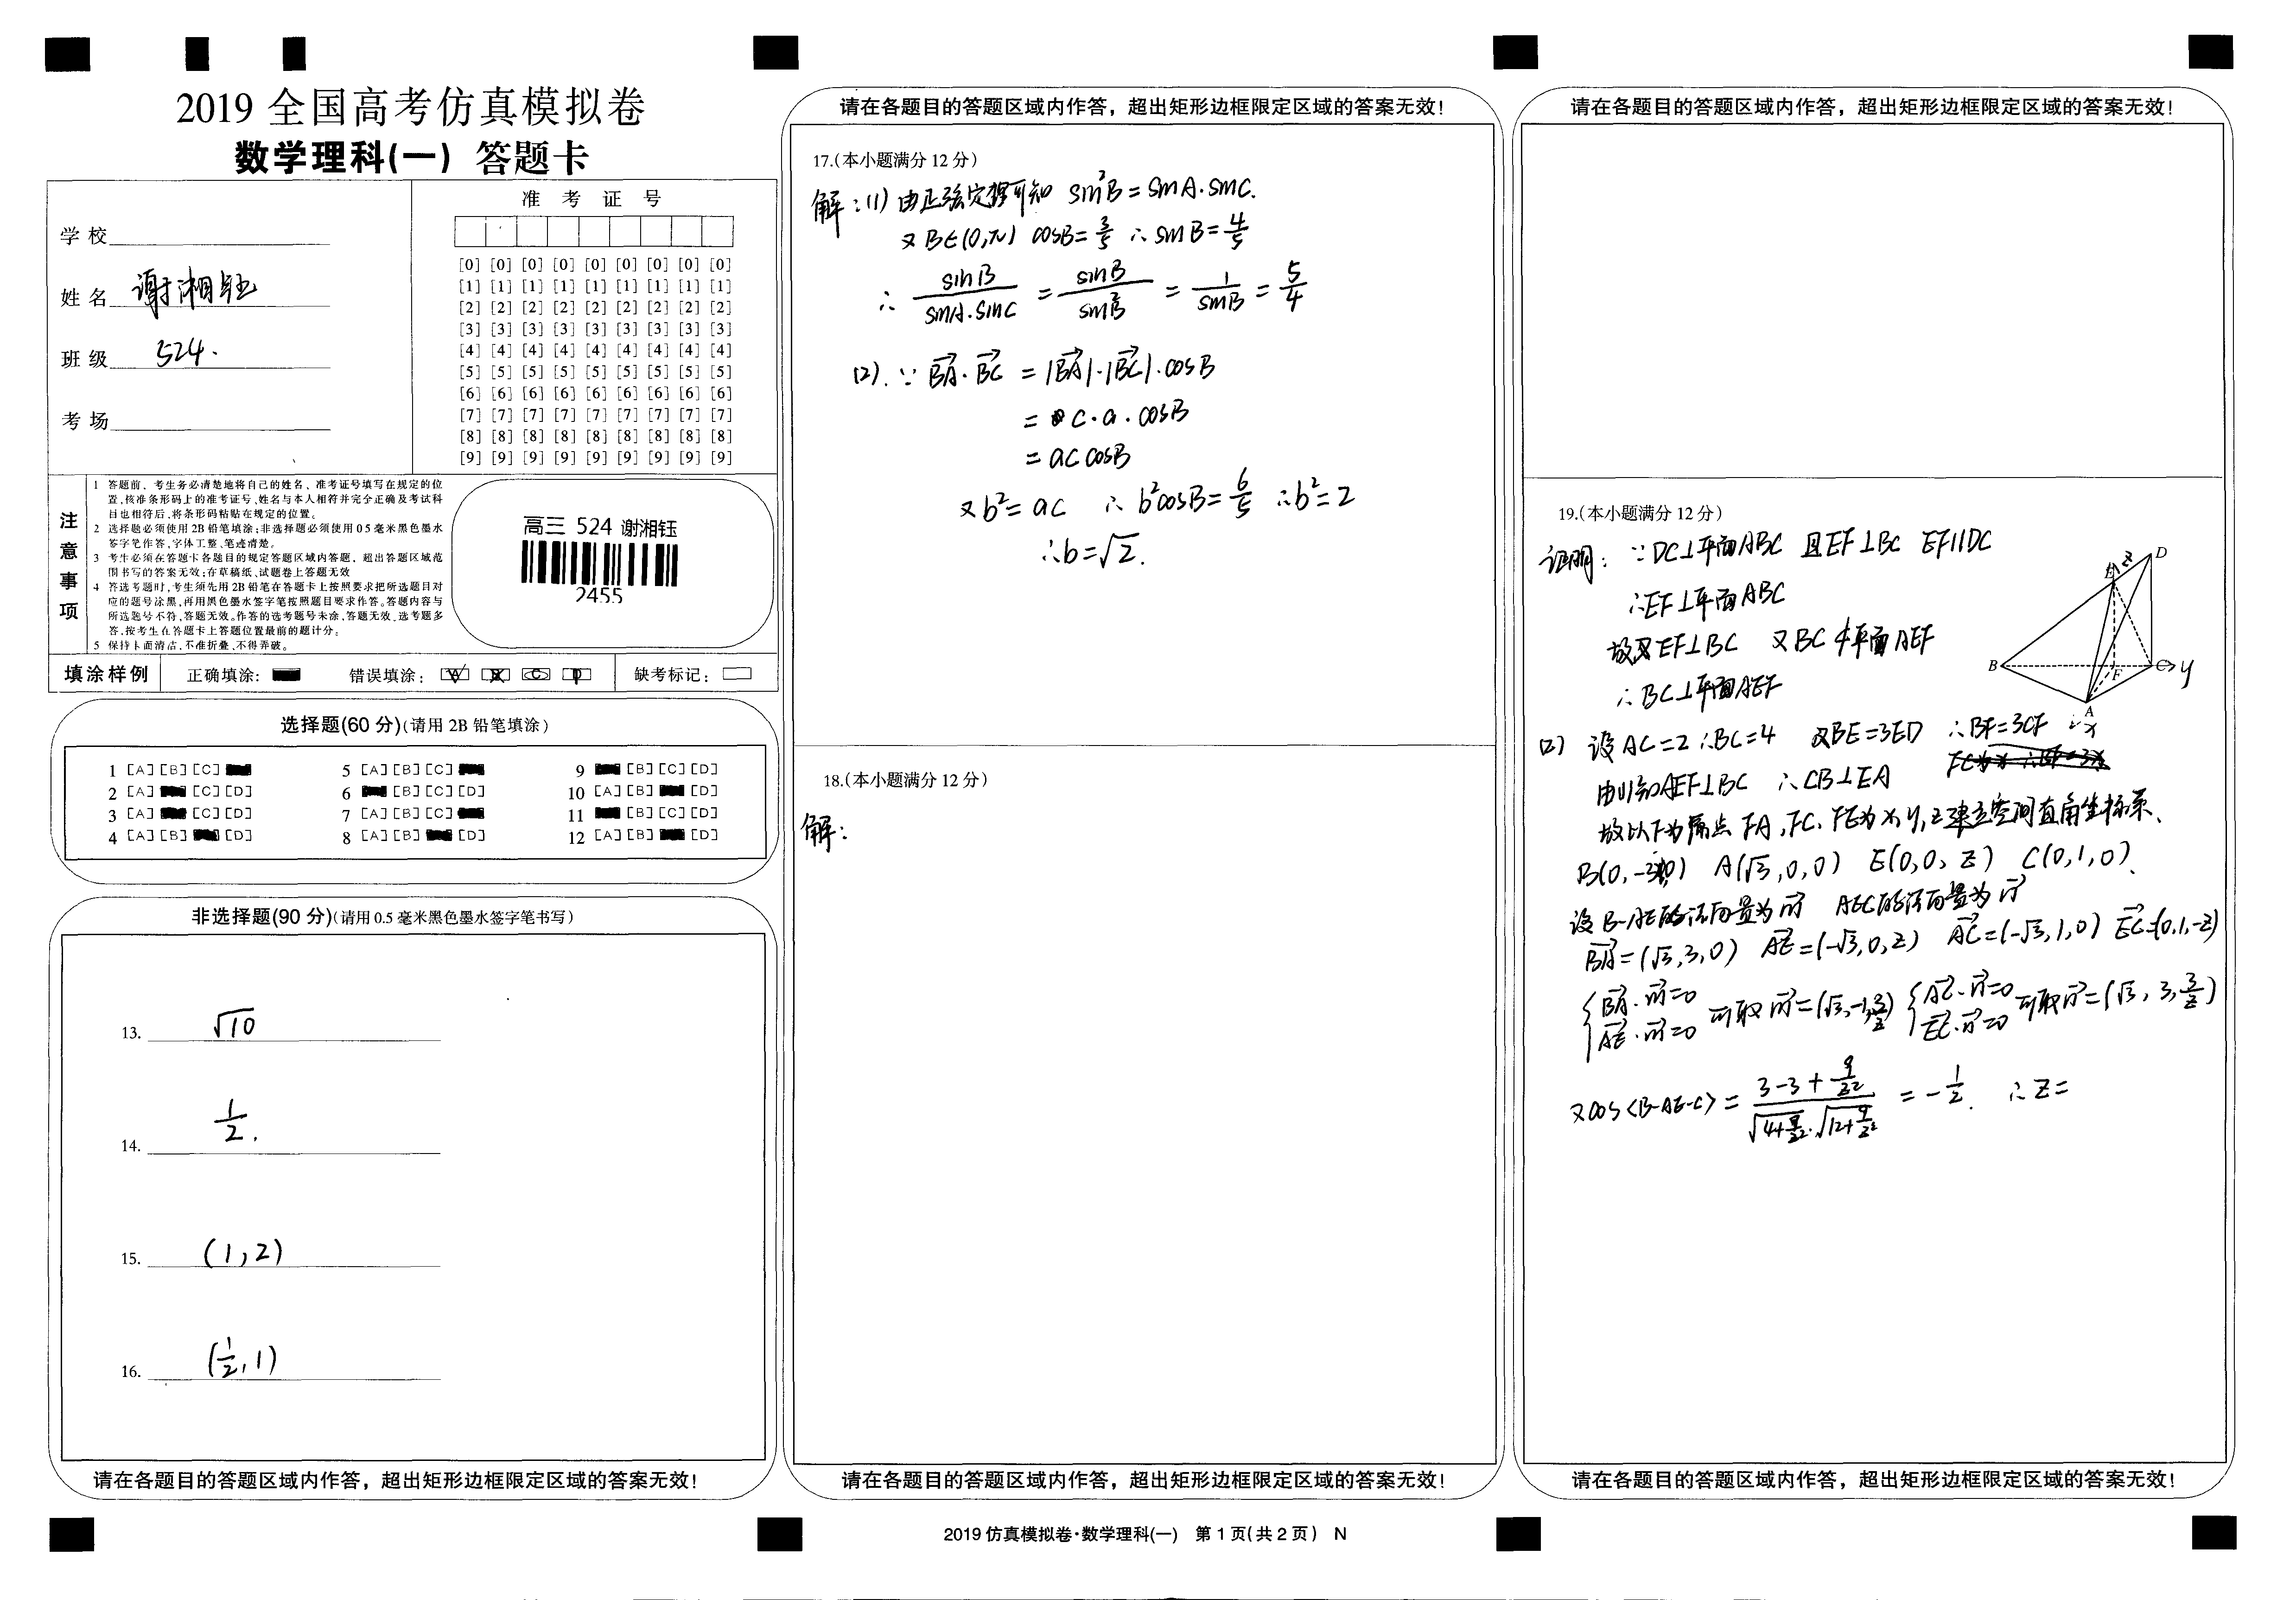 2019 全国高考仿真模拟卷
数学理科(一) 答题卡
学校
姓名 谢湘钰
班级 524.
考场
准 考 证 号
[0] [0] [0] [0] [0] [0] [0] [0] [0]
[1] [1] [1] [1] [1] [1] [1] [1] [1]
[2] [2] [2] [2] [2] [2] [2] [2] [2]
[3] [3] [3] [3] [3] [3] [3] [3] [3]
[4] [4] [4] [4] [4] [4] [4] [4] [4]
[5] [5] [5] [5] [5] [5] [5] [5] [5]
[6] [6] [6] [6] [6] [6] [6] [6] [6]
[7] [7] [7] [7] [7] [7] [7] [7] [7]
[8] [8] [8] [8] [8] [8] [8] [8] [8]
[9] [9] [9] [9] [9] [9] [9] [9] [9]
注意事项
1 答题前，考生务必清楚地将自己的姓名、准考证号填写在规定的位
置,核准条形码上的准考证号、姓名与本人相符并完全正确及考试科
目也相符后,将条形码粘贴在规定的位置。
2 选择题必须使用2B铅笔填涂;非选择题必须使用0 5毫米黑色墨水
签字笔作答,字体工整、笔迹清楚。
3 考生必须在答题卡各题目的规定答题区域内答题，超出答题区域范
围书写的答案无效;在草稿纸、试题卷上答题无效
4 答选考题时,考生须先用2B铅笔在答题卡上按照要求把所选题目对
应的题号涂黑,再用黑色墨水签字笔按照题目要求作答。答题内容与
所选题号不符,答题无效。作答的选考题号未涂,答题无效。选考题多
答,按考生在答题卡上答题位置最前的题计分。
5 保持卡面清洁,不准折叠,不得弄破。
高三 524 谢湘钰
2455
填涂样例 正确填涂: 错误填涂: 缺考标记:
选择题(60 分)(请用 2B 铅笔填涂)
1 [A] [B] [C] 5 [A] [B] [C] 9 [B] [C] [D]
2 [A] [C] [D] 6 [B] [C] [D] 10 [A] [B] [D]
3 [A] [C] [D] 7 [A] [B] [C] 11 [B] [C] [D]
4 [A] [B] [D] 8 [A] [B] [D] 12 [A] [B] [D]
非选择题(90 分)(请用 0.5 毫米黑色墨水签字笔书写)
13. √10
14. 1/2.
15. (1,2)
16. (1/2,1)
请在各题目的答题区域内作答，超出矩形边框限定区域的答案无效!
请在各题目的答题区域内作答，超出矩形边框限定区域的答案无效!
17.(本小题满分 12 分)
解:(1) 由正弦定理可知 sin²B=sinA·sinC.
又B∈(0,π) cosB=3/5 ∴sinB=4/5
∴ sinB/(sinA·sinC) = sinB/sin²B = 1/sinB = 5/4
(2). ∵ BA→·BC→ = |BA→|·|BC→|·cosB
= c·a·cosB
= ac cosB
又b²=ac ∴b²cosB=6/5 ∴b²=2
∴b=√2.
18.(本小题满分 12 分)
解:
请在各题目的答题区域内作答，超出矩形边框限定区域的答案无效!
2019 仿真模拟卷·数学理科(一) 第 1 页(共 2 页) N
请在各题目的答题区域内作答，超出矩形边框限定区域的答案无效!
19.(本小题满分 12 分)
证明: ∵DC⊥平面ABC 且EF⊥BC EF∥DC
∴EF⊥平面ABC
故 EF⊥BC 又BC⊄平面AEF
∴BC⊥平面AEF
E z D
B F C y
A x
(2) 设AC=2 ∴BC=4 又BE=3ED ∴BF=3CF
由(1)知AEF⊥BC ∴CB⊥EA
故以F为原点 FA,FC,FE为x,y,z建立空间直角坐标系、
B(0,-3,0) A(√3,0,0) E(0,0,z) C(0,1,0)、
设B-AE的法向量为m→ AEC的法向量为n→
BA→=(√3,3,0) AE→=(-√3,0,z) AC→=(-√3,1,0) EC→=(0,1,-z)
{BA→·m→=0 AE→·m→=0 可取m→=(√3,-1,3/z) {AC→·n→=0 EC→·n→=0 可取n→=(√3,3,3/z)
又cos<B-AE-C>= (3-3+9/z²)/(√(4+9/z²)·√(12+9/z²)) =-1/2. ∴z=
请在各题目的答题区域内作答，超出矩形边框限定区域的答案无效!